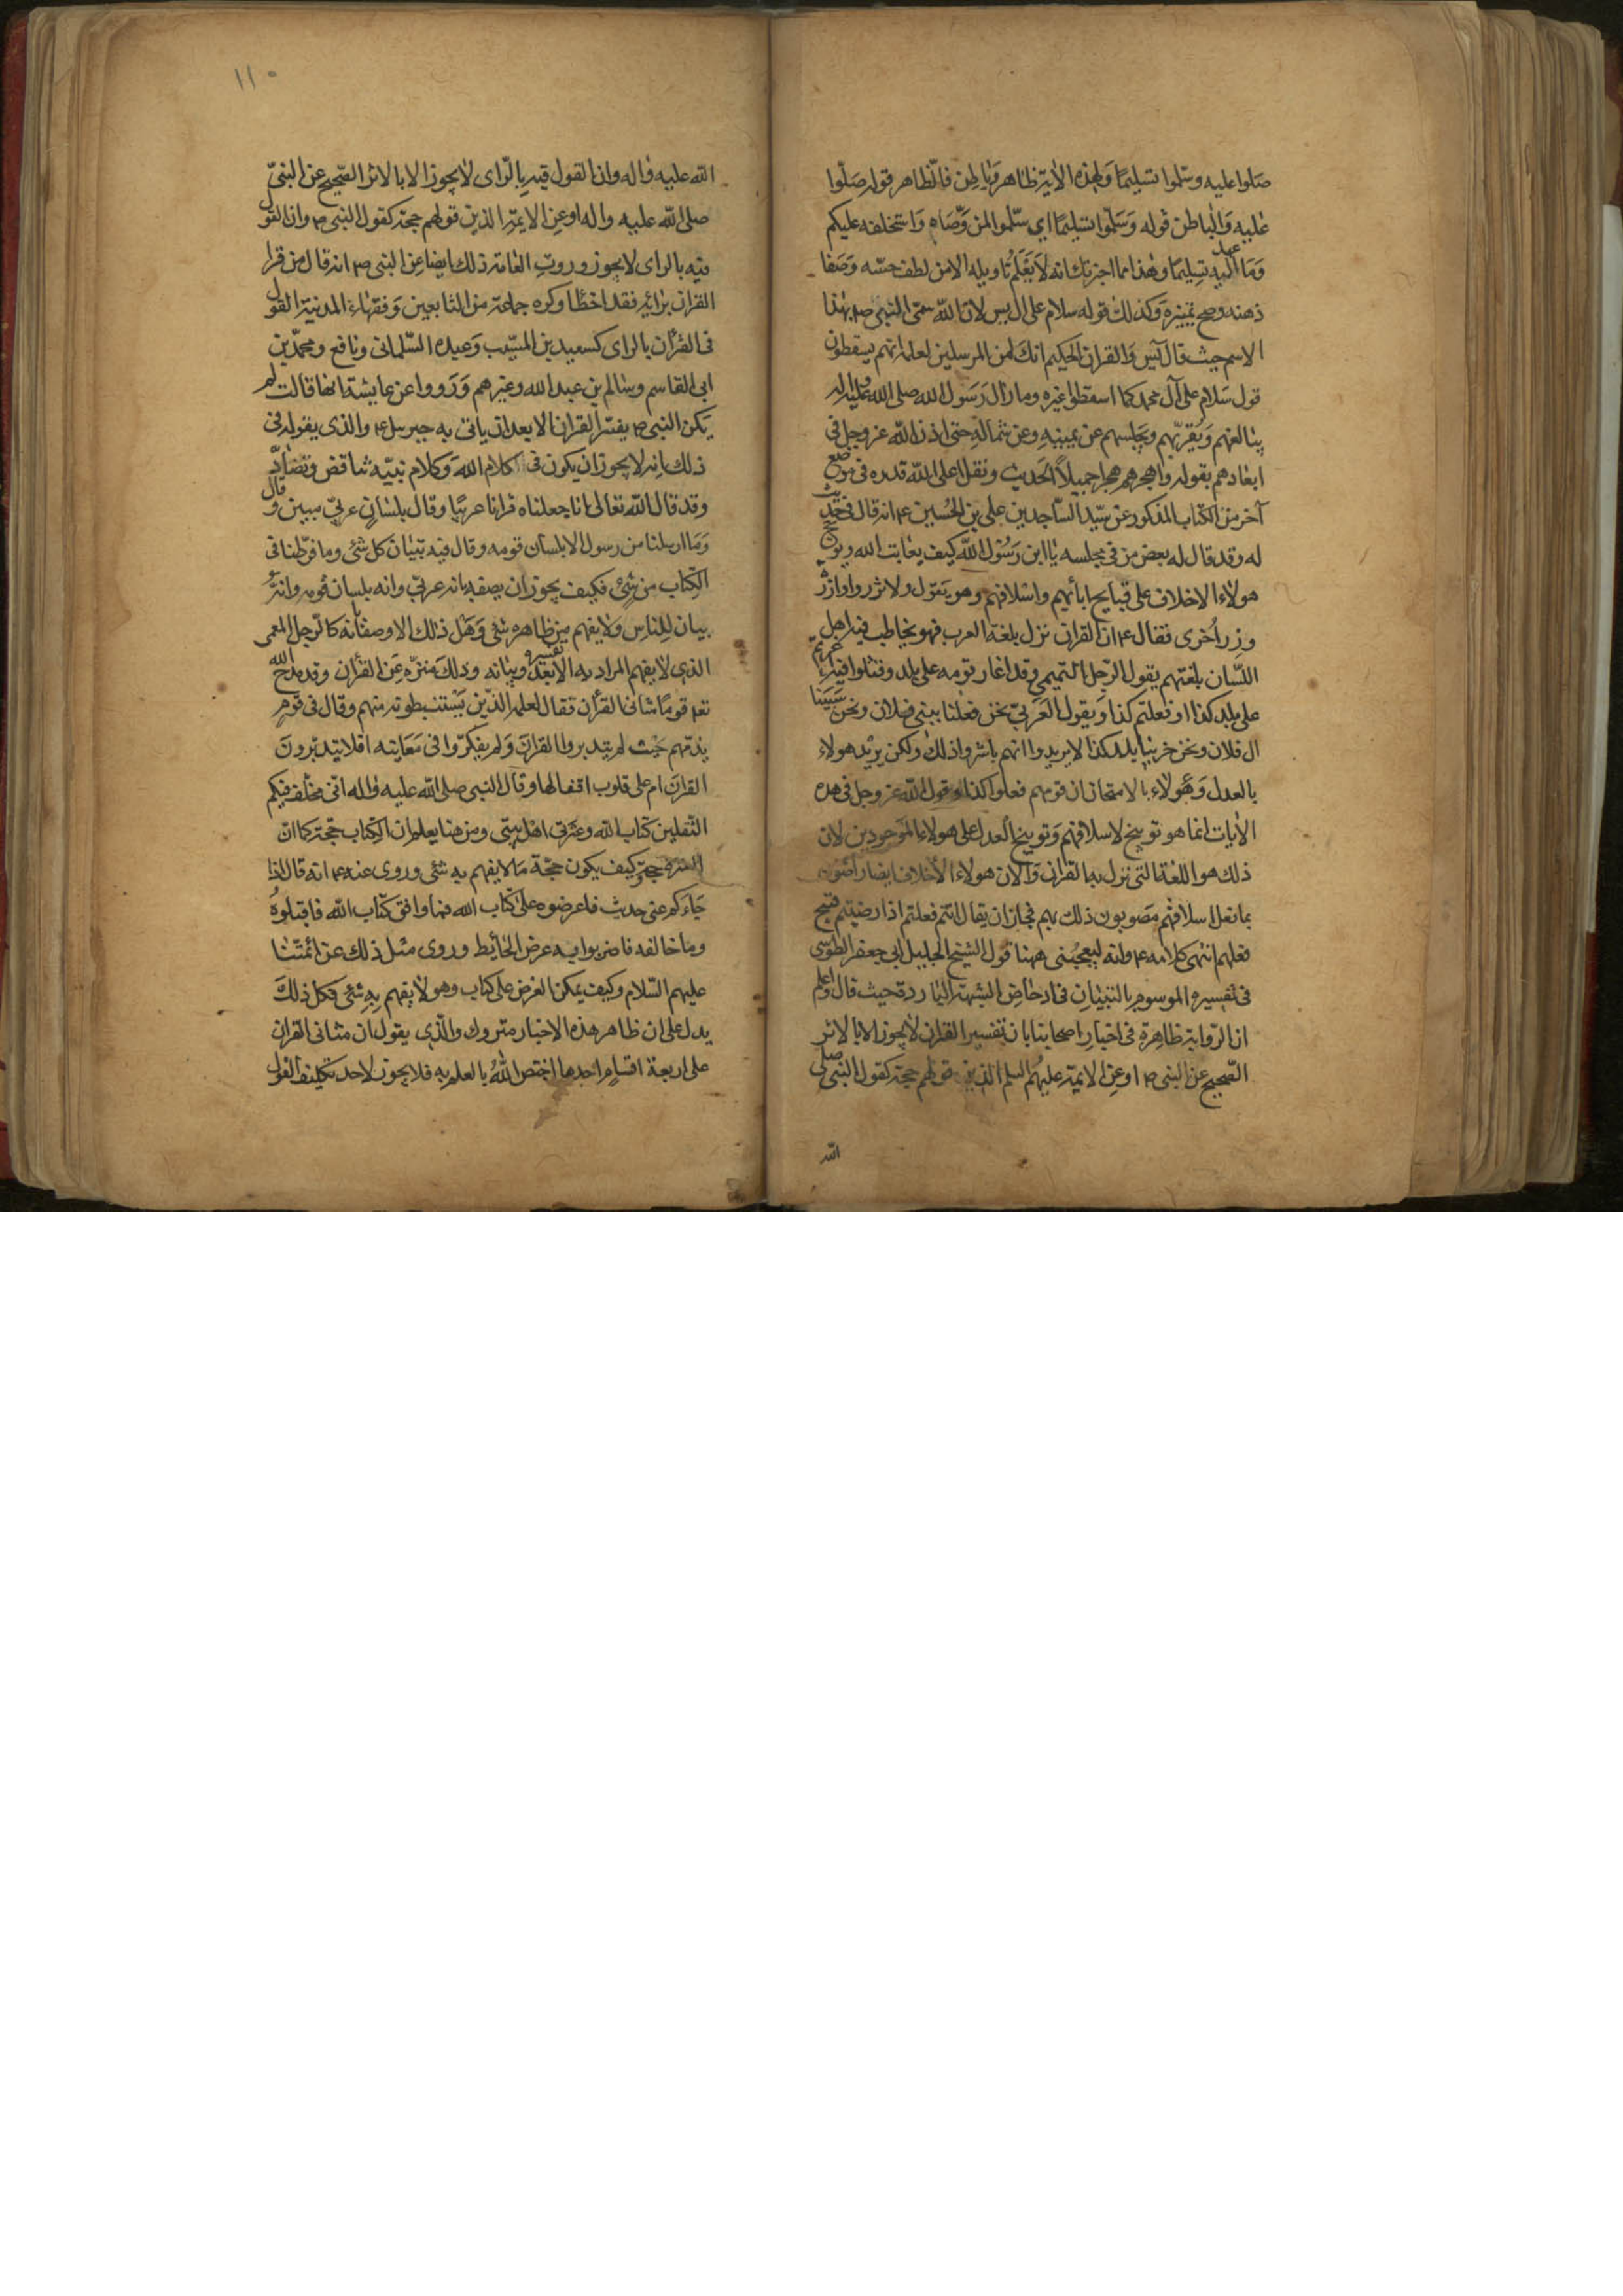 صلوا عليه وسلموا تسليما ولهذه الاية ظاهر وباطن فالظاهر قوله صلوا
عليه والباطن قوله وسلموا تسليما اي سلموا لمن وصاه واستخلفه عليكم
وما عهد اليه تسليما وهذا مما اخبرتك انه لا يعلم تاويله الا من لطف حسه وصفا
ذهنه وصح تميزه وكذلك قوله سلام على ال يس لان الله سمى النبي ص بهذا
الاسم حيث قال يس والقران الحكيم انك لمن المرسلين لعلمه انهم يسقطون
قول سلام على آل محمد كما اسقطوا غيره وما زال رسول الله صلى الله عليه واله
يتالفهم ويقربهم ويجلسهم عن يمينه وعن شماله حتى اذن الله عز وجل في
ابعادهم بقوله واهجرهم هجرا جميلا الحديث ونقل اعلى الله قدره في موضع
آخر من الكتاب المذكور عن سيد الساجدين علي بن الحسين ع انه قال في حديث
له وقد قال له بعض من في مجلسه يا ابن رسول الله كيف يعاتب الله ويوبخ
هولاء الاخلاف على قبايح ابائهم واسلافهم وهو يقول ولا تزر وازرة
وزر اخرى فقال ع ان القران نزل بلغة العرب فهو يخاطب فيه اهل
اللسان بلغتهم يقول الرجل التميمي وقد اغار قومه على بلد وقتلوا فيه اغرتم
على بلد كذا او فعلتم كذا ويقول العربي نحن فعلنا ببني فلان ونحن سبينا
ال فلان ونحن خربنا بلد كذا لا يريدوا انهم باشروا ذلك ولكن يريد هولاء
بالعدل وهولاء بالامتحان ان قومهم فعلوا كذا وقول الله عز وجل في هذه
الايات انما هو توبيخ لاسلافهم وتوبيخ العدل على هولاء الموجودين لان
ذلك هو اللغة التي نزل بها القران والان هولاء الاخلاف ايضا راضون
بما فعل اسلافهم مصوبون ذلك بهم فجاز ان يقال انتم فعلتم اذ رضيتم قبيح
فعلهم انتهى كلامه ع وانه ليعجبني ههنا قول الشيخ الجليل ابي جعفر الطوسي
في تفسيره الموسوم بالتبيان في ادحاض الشبهة الباردة حيث قال واعلم
ان الرواية ظاهرة في اخبار اصحابنا بان تفسير القران لا يجوز الا بالاثر
الصحيح عن النبي ص او عن الايمة عليهم السلم الذين قولهم حجة كقول النبي صلى
الله
١١٠
الله عليه واله وان القول فيه بالراى لا يجوز الا بالاثر الصحيح عن النبي
صلى الله عليه واله او عن الايمة الذين قولهم حجة كقول النبي ص وان القول
فيه بالراى لا يجوز وروت العامة ذلك ايضا عن النبي ص انه قال من قرا
القران برائه فقد اخطا وكره جماعة من التابعين وفقهاء المدينة القول
في القران بالراى كسعيد بن المسيب وعبيده السلماني ونافع ومحمد بن
ابى القاسم وسالم بن عبد الله وغيرهم ورووا عن عايشة انها قالت لم
يكن النبي ص يفسر القران الا بعد ان ياتي به جبرئيل ع والذى يقوله في
ذلك انه لا يجوز ان يكون في كلام الله وكلام نبيه تناقض وتضاد
وقد قال الله تعالى انا جعلناه قرانا عربيا وقال بلسان عربي مبين وقال
وما ارسلنا من رسول الا بلسان قومه وقال فيه تبيان كل شئ وما فرطنا في
الكتاب من شئ فكيف يجوز ان يصفه بانه عربي وانه بلسان قومه وانه
بيان للناس ولا يفهم من ظاهره شئ وهل ذلك الا وصفا بانه كالرجل المعمى
الذي لا يفهم المراد به الا بعد تفسيره وبيانه وذلك منزه عن القران وقد مدح الله
تعه قوما شانى القران فقال لعلمه الذين يستنبطونه منهم وقال في قوم
يذمهم حيث لم يتدبروا القران ولم يفكروا في معانيه افلا يتدبرون
القران ام على قلوب اقفالها وقال النبي صلى الله عليه واله اني مخلف فيكم
الثقلين كتاب الله وعترتي اهل بيتي ومن هنا يعلم ان الكتاب حجة كما ان
العترة حجة وكيف يكون حجة ما لا يفهم به شئ وروى عنه ع انه قال اذا
جاءكم عني حديث فاعرضوه على كتاب الله فما وافق كتاب الله فاقبلوه
وما خالفه فاضربوا به عرض الحائط وروى مثل ذلك عن ائمتنا
عليهم السلام وكيف يمكن العرض على كتاب وهو لا يفهم به شئ فكل ذلك
يدل على ان ظاهر هذه الاخبار متروك والذي يقول ان مثاني القران
على اربعة اقسام احدها اختص الله بالعلم به فلا يجوز لاحد تكليف القول